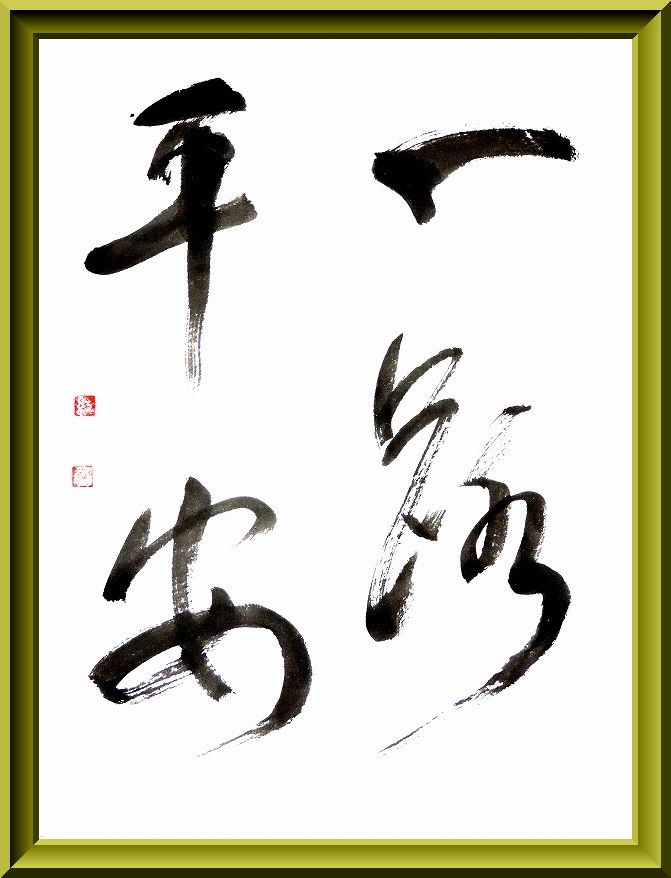 一路
平安